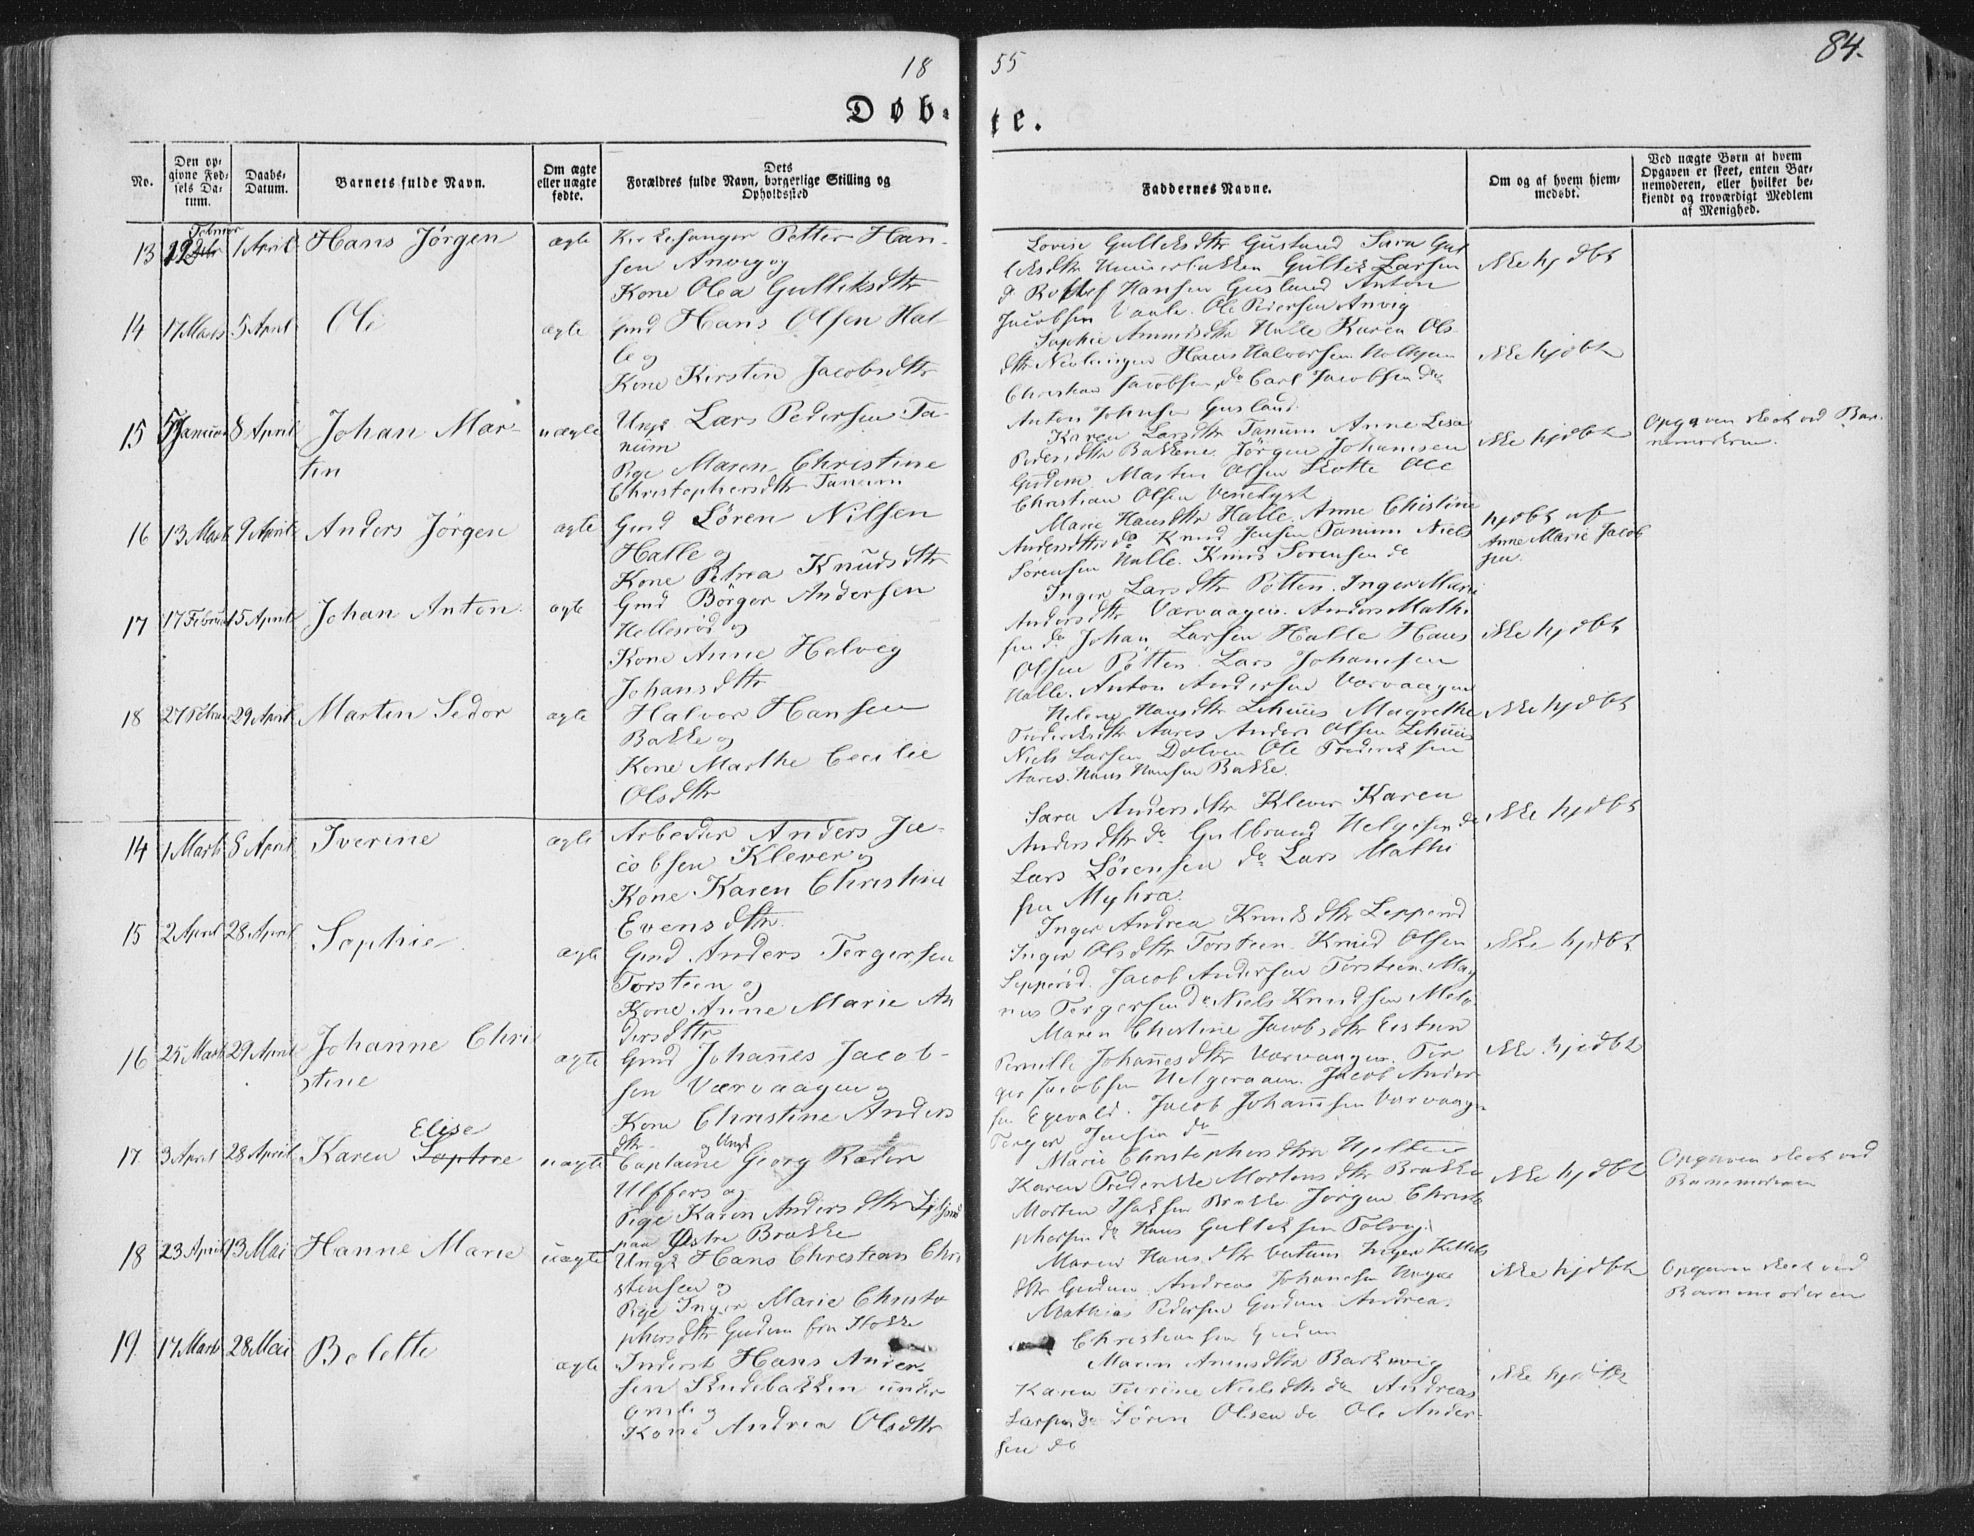 18 55
84.
Døb-te.
No.
Den op-
givne Fød-
sels Da-
tum.
Daabs-
Datum.
Barnets fulde Navn.
Om ægte
eller uægte
fødte.
Dets
Forældres fulde Navn, borgerlige Stilling og
Opholdssted
Faddernes Navne.
Om og af hvem hjem-
medøbt.
Ved uægte Børn af hvem
Opgaven er skeet, enten Bar-
nemoderen, eller hvilket be-
kjendt og troværdigt Medlem
af Menighed.
13 1 April Hans Jørgen ægte Petter Han-
sen Anvig og
Kone Olea Gulleksdtr
Lovise Gulleksdtr Gusland Sara Gul
leksdtr Gullik Larsen
Hansen Gusland Anton
Jacobsen Vaale. Ole Pedersen Anvig
ikke hjdbt
14 17 Marts 5 April Ole ægte Gmd Hans Olsen Hal-
le og
Kone Kirstin Jacobsdtr
Sophie Halle Karen Ols-
dtr Hans Halvorsen
Christian Jacobsen do Carl Jacobsen do
Anton Johnsen Gusland
ikke hjdbt
15 5 Januar 8 April Johan Mar-
tin
uægte Ungk Lars Pedersen Ta-
num
Pige Maren Christine
Christophersdtr Tanum
Karen Larsdtr Tanum Anne Lisa
Pedersdtr Bakkene Jørgen Johannsen
Gudem. Morten Olsen Ole
Christian Olsen
ikke hjdbt
Opgaven skeet ved Bar-
nemoderen.
16 13 Marts 9 April Anders Jørgen ægte Gmd Søren Nilsen
Halle og
Kone Petrea Knudsdtr
Marie Hansdtr Halle. Anne Christine
Andersdtr do Knud Jensen Tanum Niels
Sørensen Halle. Knud Sørensen do
hjdbt af
Anne Marie Jacob
sen.
17 17 Februar 15 April Johan Anton. ægte Gmd Børger Andersen
Hellesrød og
Kone Anne Helveg
Johansdtr
Inger Larsdtr Pøtten. Inger Marie
Andersdtr Varvaagen. Anders Mathi
sen do Johan Larsen Halle Hans
Olsen Pøtten. Lars Johannsen
Halle. Anton Andersen Varvaagen
ikke hjdbt
18 27 Februar 29 April Martin Sedor ægte Halvor Hansen
Bakke og
Kone Marthe Cecilie
Olsdtr
Helene Hansdtr Magrethe
Frederiksdtr Aares Anders Olsen
Niels Larsen Dolven Ole Frederiksen
Aares. Hans Hansen Bakke.
ikke hjdbt
14 1 Marts 8 April Iverine ægte Arbeider Anders Ja-
cobsen Klever og
Kone Karen Christine
Evensdtr.
Sara Andersdtr Klever Karen
Andersdtr do Gulbrand Helgesen do
Lars Sørensen do Lars Mathi
sen Myhra.
ikke hjdbt
15 2 April 28 April Sophie. ægte Gmd Anders Tergersen
Torsteen og
Kone Anne Marie An
dersdtr
Inger Andrea Knudsdtr Lepperød
Inger Olsdtr Torsteen. Knud Olsen
Lepperød. Jacob Andersen Torsteen. Mag
nus Tergersen do Niels Knudsen Melø
ikke hjdbt
16 25 Marts 29 April Johanne Chri
stine
ægte Gmd Johannes Jacob-
sen Varvaagen og
Kone Christine Anders
dtr
Maren Christine Jacobsdtr
Pernille Johannesdtr Varvaagen. Ter
ger Jacobsen Helgeraaen. Jacob Ander
sen Egevold. Jacob Johannsen Varvaagen
Terger do
ikke hjdbt
17 3 April 28 April Karen Elise Sophie uægte Captaine og Ungk Georg Ræder
Ulffers og
Pige Karen Andersdtr
paa Østre Brakke
Marie Christophersdtr
Karen Frederikke Mortensdtr Brakke
Morten Isaksen Brakke Jørgen Christo
phersen do Hans Gulleksen
ikke hjdbt
Opgaven skeet ved
Barnemoderen
18 23 April 13 Mai Hanne Marie uægte Ungk Hans Christian Chri
stensen og
Pige Inger Marie Christo
phersdtr Gudem fra
Maren Hansdtr Inger Kittels
dtr Gudem. Andreas Johannsen
Mathias Pedersen Gudem Andreas
Christiansen Gudem
ikke hjdbt
Opgaven skeet ved
Barnemoderen
19 17 Marts 28 Mai Bolette ægte Inderst Hans Ander-
sen Skudebakken under
og
Kone Andrea Olsdtr
Maren Barkevig
Karen Turine Nielsdtr do Andreas
Larsen do Søren Olsen do Ole Ander-
sen do
ikke hjdbt